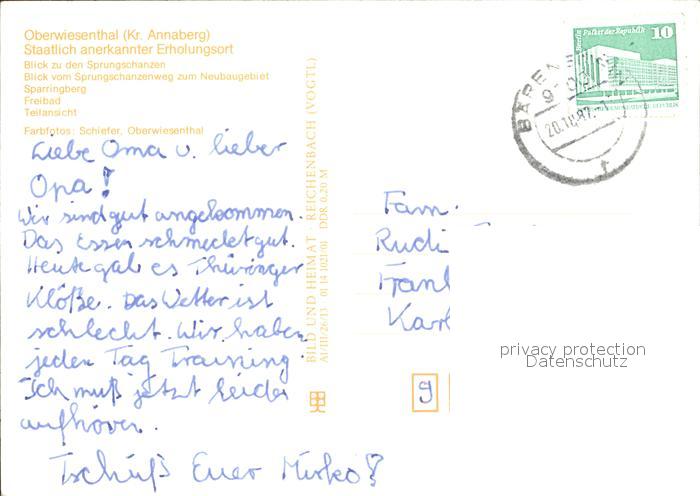 Oberwiesenthal (Kr. Annaberg)
Staatlich anerkannter Erholungsort
Blick zu den Sprungschanzen
Blick vom Sprungschanzenweg zum Neubaugebiet
Sparringberg
Freibad
Teilansicht
Farbfotos: Schiefer, Oberwiesenthal
Liebe Oma u. lieber
Opa!
Wir sind gut angekommen.
Das Essen schmecket gut.
Heute gab es Thüringer
Klöße. Das Wetter ist
schlecht. Wir haben
jeden Tag Training.
Ich muß jetzt leider
aufhören.
Tschüß Euer Mirko
BILD UND HEIMAT · REICHENBACH (VOGTL)
A1/III/26/13 01 14 1021/01 DDR 0,20 M
Berlin Palast der Republik
10
20.10.87
Fam.
Rudi
Karl
9
privacy protection
Datenschutz